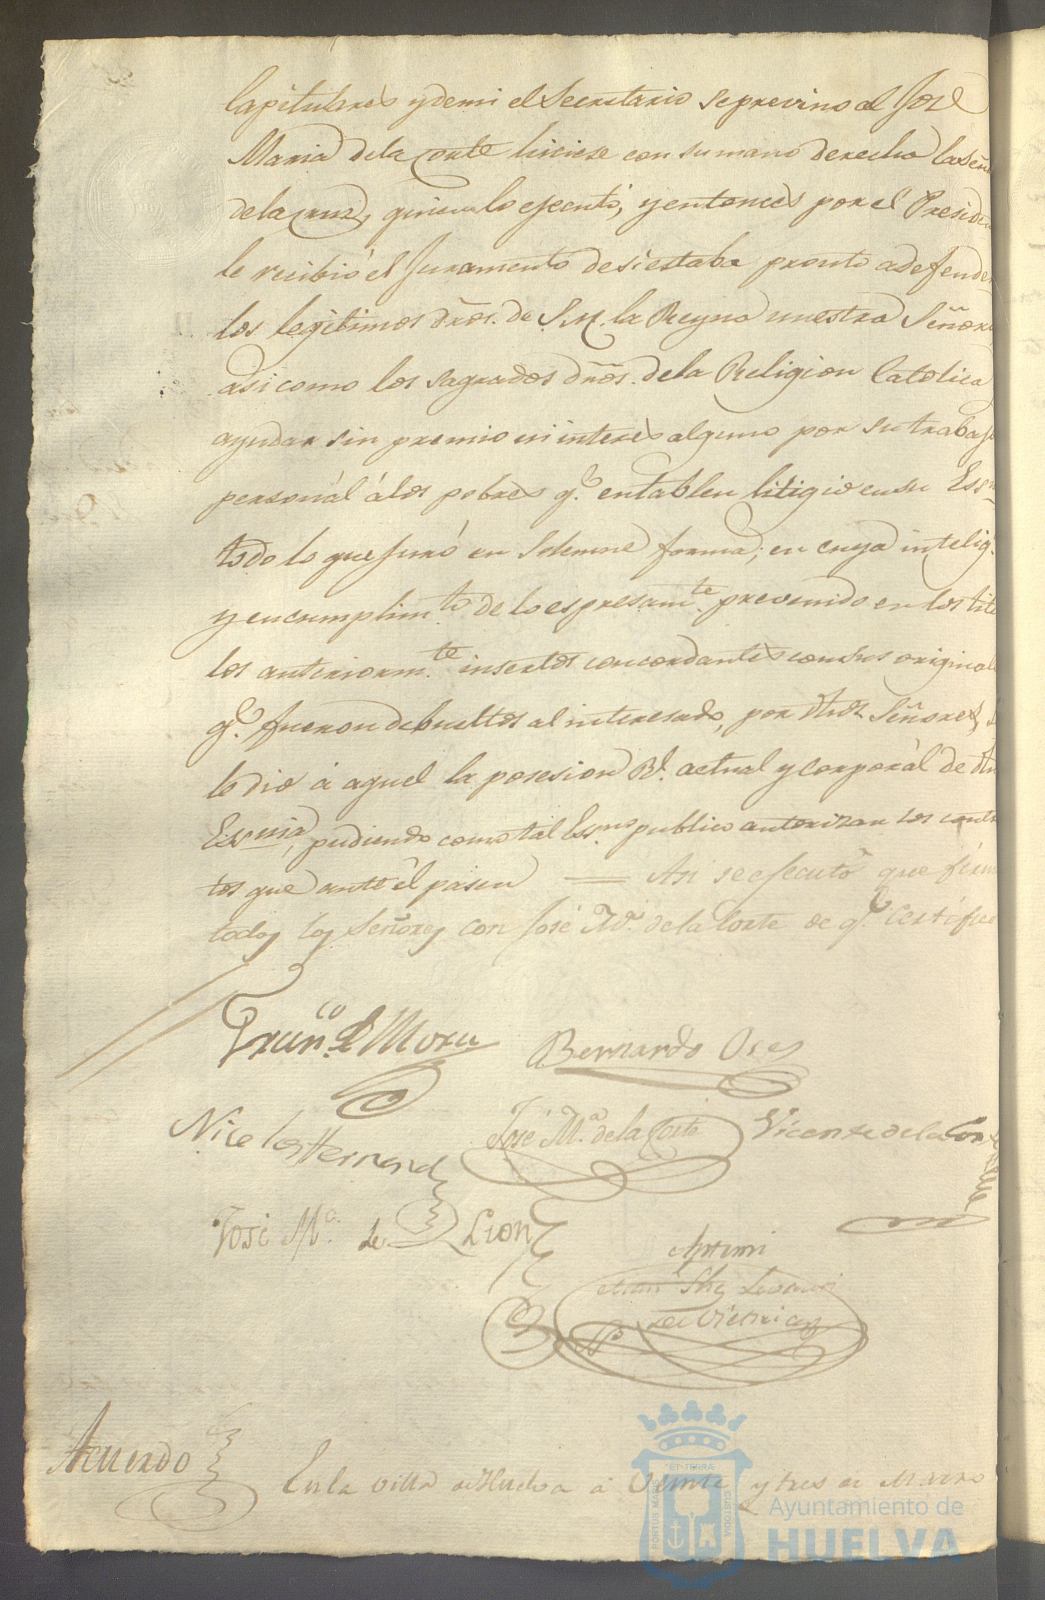 Capitulares y de mi el Secretario se previno al José
Maria de la Corte hiciese con su mano derecha la Señ
de la cruz, quien lo ejecutó, y entonces por el Presid
le recibió el Juramento de si estaba pronto a defende
los legitimos dros. de S.M. la Reyna nuestra Señora
asi como los sagrados dros. de la Religion Catolica
ayudar sin premio ni interes alguno por su trabajo
personal á los pobres q.e entablen litigio en su Es
todo lo que juró en solemne forma; en cuya intelig.
y en cumplim.to de lo espresam.te prevenido en los títu
los anteriorm.te insertos concordantes con sus original
q.e fueron debueltos al interesado, por dhos Señores,
le dió á aquel la posesion Rl. actual y corporál de
Essnia, pudiendo como tal Essno publico autorizar los contr
tos que ante él pasen = Asi se ejecutó que firm
todos los Señores con José M.a de la Corte de q.e Certifico
Fran.co de Mora Bernardo Oses
Nicolas Hernand
José M.a de la Corte Vicente de la Cor
José M.a de Leon
Antemi
Acuerdo
En la villa de Huelva á Veinte y tres de Marzo
PORTUS MARIS ET TERRAE CUSTODIA
Ayuntamiento de
HUELVA